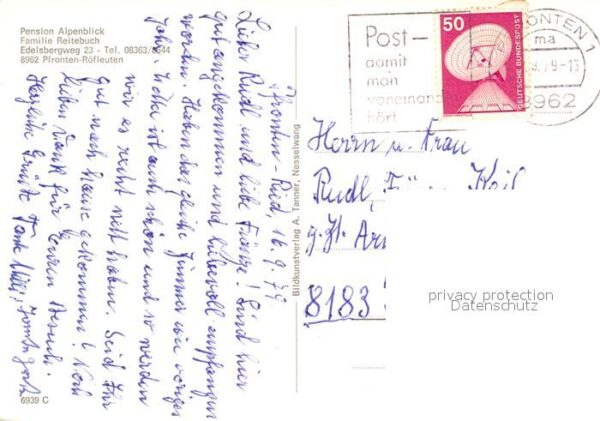 Pension Alpenblick
Familie Reitebuch
Edelsbergweg 23 - Tel. 08363/8644
8962 Pfronten-Röfleuten
Pfronten-Ried, 16.9.79
Lieber Rudl und liebe Fränze! Sind hier
gut angekommen und liebevoll empfangen
worden. Haben das gleiche Zimmer wie voriges
Jahr. Wetter ist auch schön und so werden
wir es recht nett haben. Seid Ihr
gut nach Hause gekommen? Noch
lieben Dank für Euren Besuch.
Herzliche Grüße Tante
6939 C
Bildkunstverlag A. Tanner, Nesselwang
Post-
damit
man
voneinander
hört
50
DEUTSCHE BUNDESPOST
PFRONTEN 1
ma
9.79-18
8962
Herrn u. Frau
Rudl,
g. Ht.
8183
privacy protection
Datenschutz